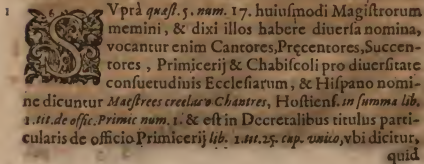 1 SVprà quæst. 5. num. 17. huiusmodi Magistrorum
memini, & dixi illos habere diuersa nomina,
vocantur enim Cantores, Pręcentores, Succen-
tores, Primicerij & Chabiscoli pro diuersitate
consuetudinis Ecclesiarum, & Hispano nomi-
ne dicuntur Maestrees creelas o Chantres, Hostiens. in summa lib.
1. tit. de offic. Primic num. 1. & est in Decretalibus titulus parti-
cularis de officio Primicerij lib. 1. tit. 25. cap. vnico, vbi dicitur,
quid